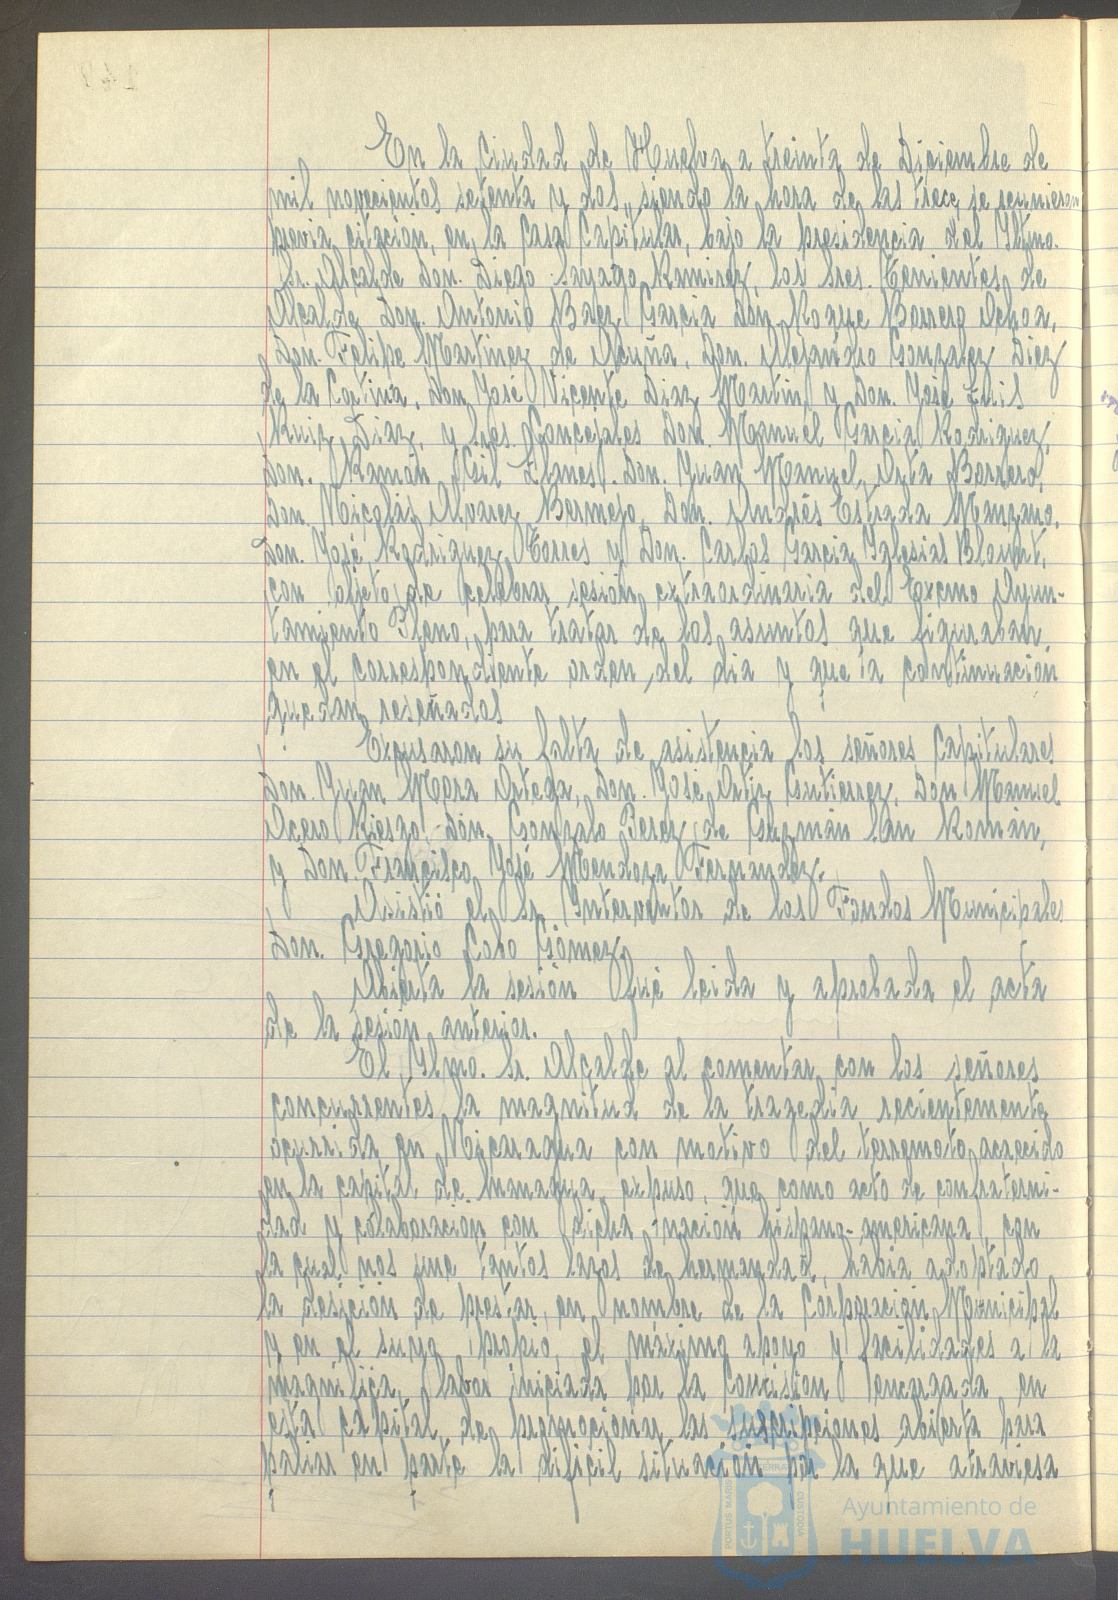 En la Ciudad de Huelva a treinta de Diciembre de
mil novecientos setenta y dos, siendo la hora de las trece, se reunieron
previa citación, en la Casa Capitular, bajo la presidencia del Iltmo.
Sr. Alcalde Don. Diego Sayago Ramirez, los sres. Tenientes de
Alcalde Don. Antonio Baez Garcia Don Roque Borrero Ochoa,
Don. Felipe Martinez de Acuña, Don. Alejandro Gonzalez Diez
de la Cortina, Don José Vicente Diaz Martin y Don. José Luis
Ruiz Diaz, y sres. Concejales Don. Manuel Garcia Rodriguez,
Don. Ramón Gil Llanes. Don. Juan Manuel Orta Borrero,
Don. Nicolás Alvarez Bermejo, Don. Andrés Estrada Manzano,
Don. José Rodriguez Torres y Don. Carlos Garcia Iglesias Blount,
con objeto de celebrar sesión extraordinaria del Excmo Ayun-
tamiento Pleno, para tratar de los asuntos que figuraban
en el correspondiente orden del dia y que a continuación
quedan reseñados
Excusaron su falta de asistencia los señores Capitulares
Don. Juan Mora Ortega, Don. José Ortiz Gutierrez, Don Manuel
Acero Riesgo, Don. Gonzalo Perez de Guzmán San Román,
y Don. Francisco José Mendoza Fernandez.
Asistió el Sr. Interventor de los Fondos Municipales
Don. Gregorio Cobo Gómez
Abierta la sesión fué leida y aprobada el acta
de la sesión anterior.
El Ylmo. Sr. Alcalde al comentar con los señores
concurrentes la magnitud de la tragedia recientemente
ocurrida en Nicaragua con motivo del terremoto acaecido
en la capital de Managua, expuso, que como acto de confraterni-
dad y colaboración con dicha nación hispano-americana, con
la cual nos une tantos lazos de hermandad, habia adoptado
la desición de prestar, en nombre de la Corporación Municipal
y en el suyo propio, el máximo apoyo y facilidades a la
magnifica labor iniciada por la Comision encargada en
esta capital de promocionar las suscripciones abierta para
paliar en parte la dificil situación por la que atraviesa
PORTUS MARIS
TERRAE
CUSTODIA
Ayuntamiento de
HUELVA